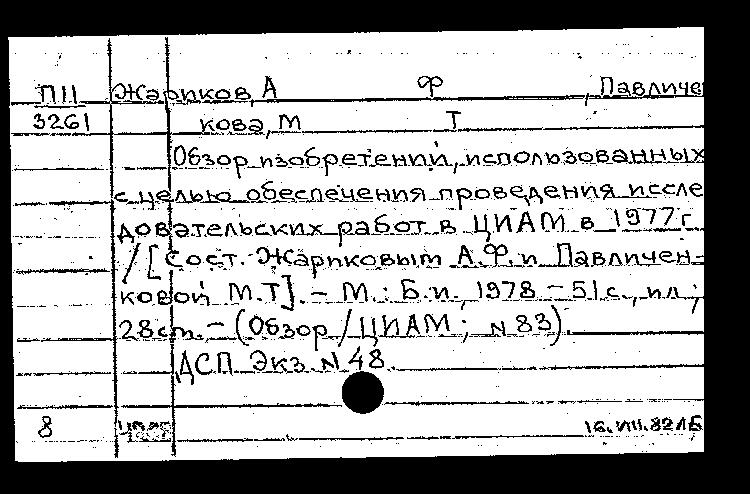 П11 Жариков, А Ф , Павличен
3261 кова, М Т
Обзор изобретений, использованных
с целью обеспечения проведения иссле
довательских работ в ЦИАМ в 1977г
/[Сост. Жариковым А.Ф. и Павличен-
ковой М.Т]. – М.: Б.и., 1978 – 51с., ил;
28см. – (Обзор/ЦИАМ; N83).
ДСП Экз. N 48.
8 16.VIII.82ЛБ